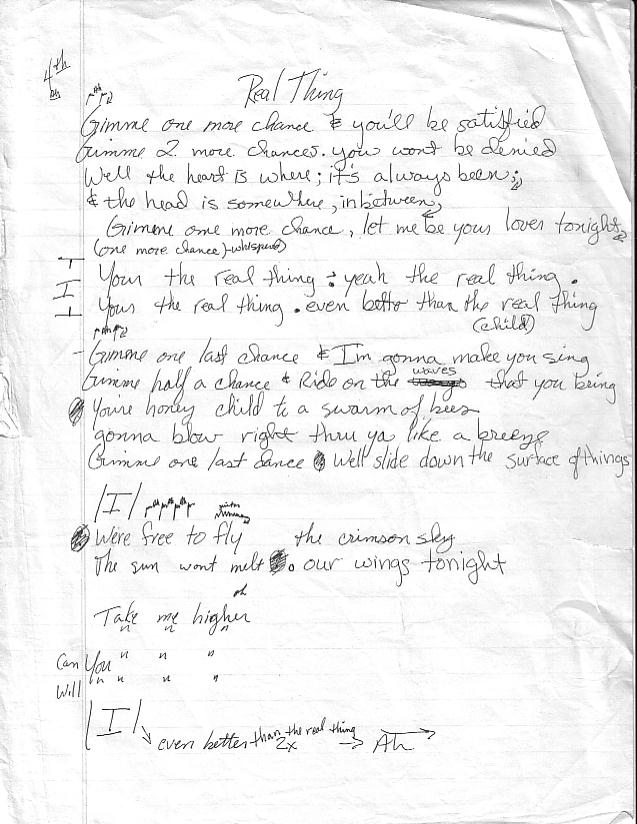 4th
Real Thing
Gimme one more chance & you'll be satisfied
Gimme 2 more chances. you wont be denied
Well the heart is where; it's always been;
& the head is somewhere, in between,
Gimme one more chance, let me be your lover tonight
(one more chance)-whispered
Your the real thing : yeah the real thing.
I
Your the real thing. even better than the real thing
(child)
Gimme one last chance & I'm gonna make you sing
waves
Gimme half a chance & Ride on the that you bring
You're honey child to a swarm of bees
gonna blow right thru ya like a breeze
Gimme one last dance We'll slide down the surface of things
|I|
We're free to fly the crimson sky
The sun wont melt our wings tonight
oh
Take me higher
" " "
Can You " " "
Will " " " "
|I|
even better than the real thing → Ah
2x